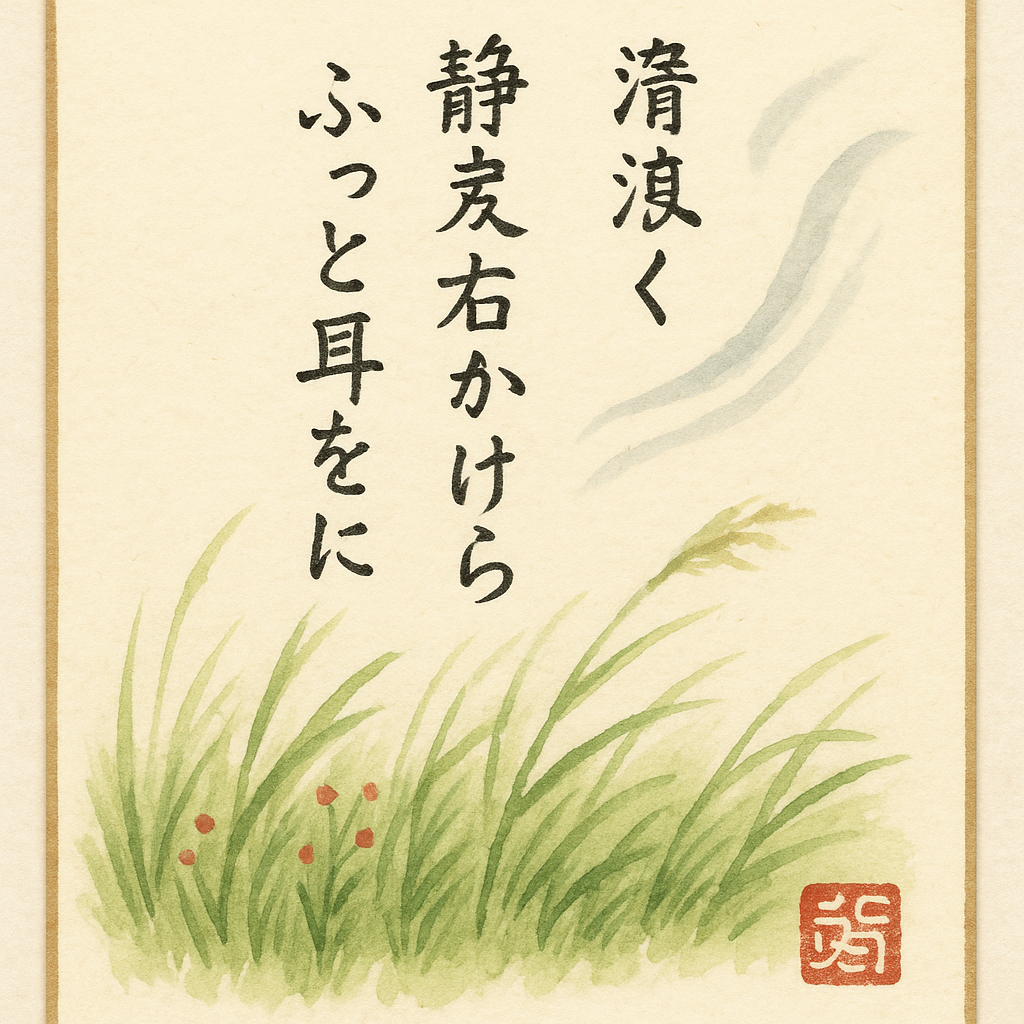 く
静右かけら
ふっと耳をに